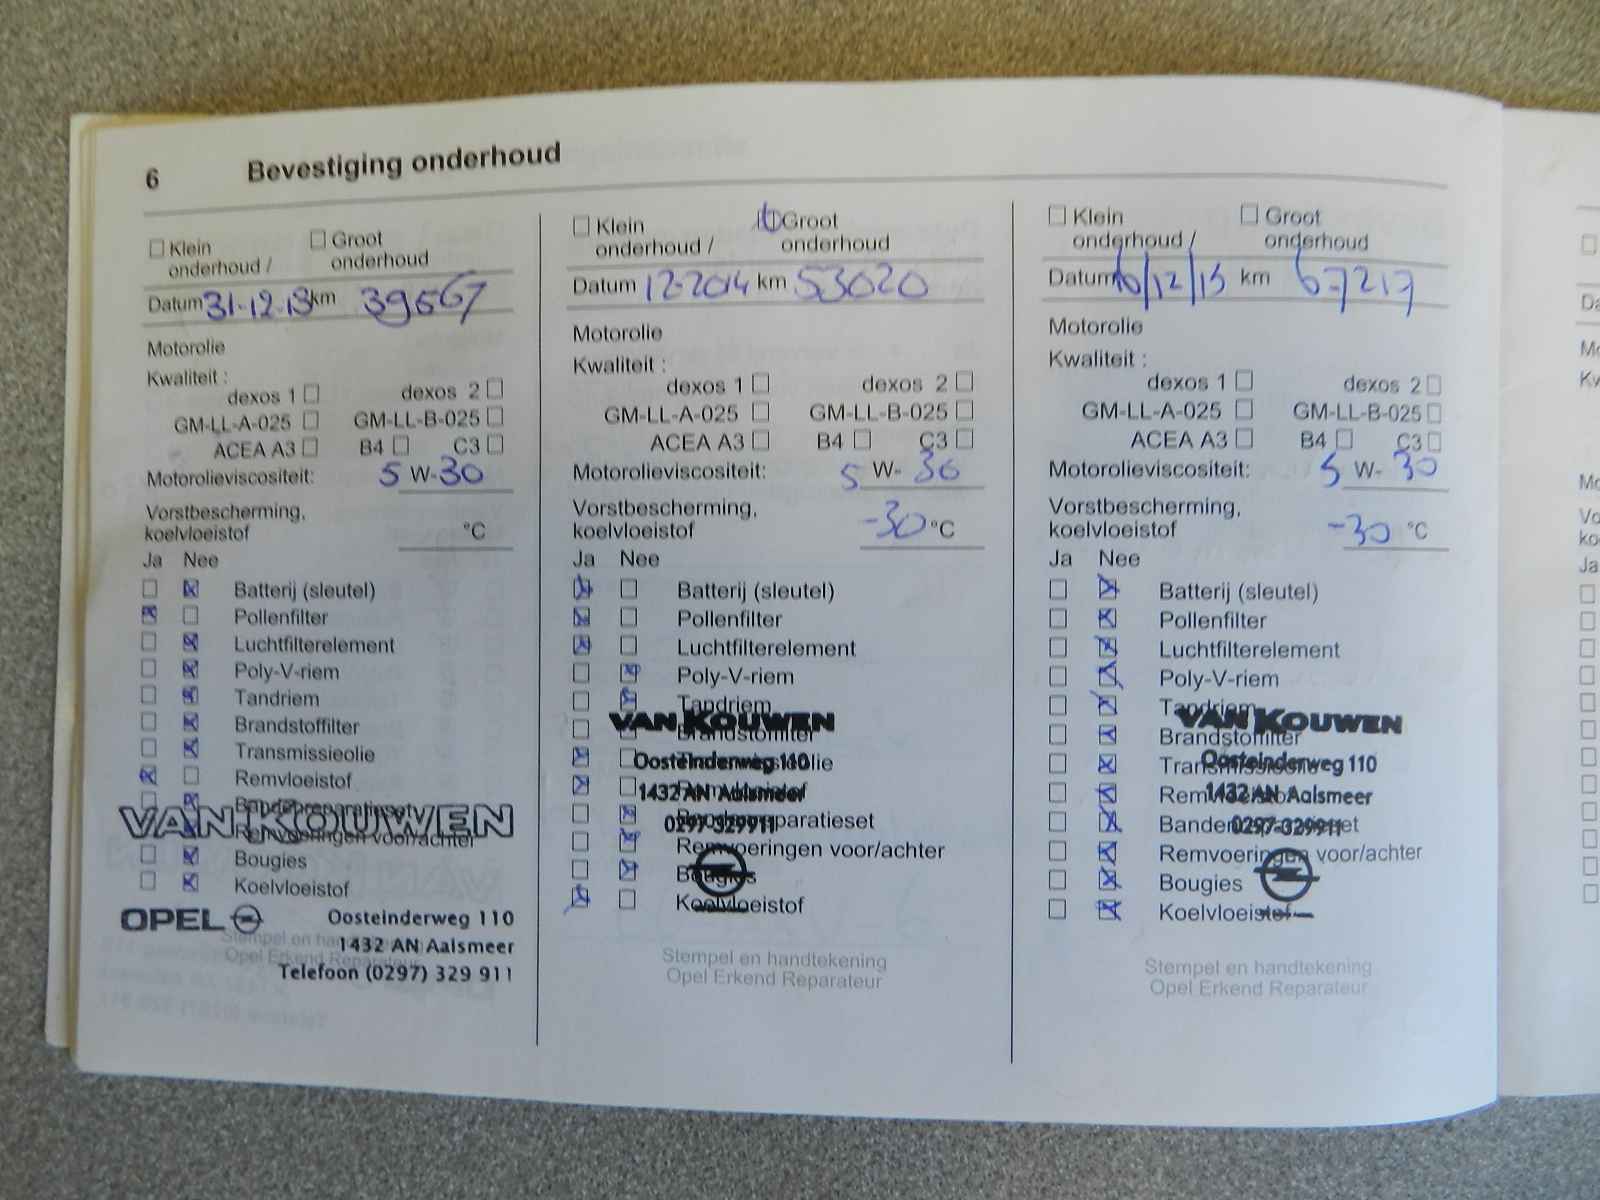 6 Bevestiging onderhoud
Klein onderhoud / Groot onderhoud
Datum 31-12-13 km 39567
Motorolie
Kwaliteit :
dexos 1 dexos 2
GM-LL-A-025 GM-LL-B-025
ACEA A3 B4 C3
Motorolieviscositeit: 5 W-30
Vorstbescherming,
koelvloeistof °C
Ja Nee
Batterij (sleutel)
Pollenfilter
Luchtfilterelement
Poly-V-riem
Tandriem
Brandstoffilter
Transmissieolie
Remvloeistof
Bandenreparatieset
VAN KOUWEN
Remvoeringen voor/achter
Bougies
Koelvloeistof
OPEL Oosteinderweg 110
1432 AN Aalsmeer
Telefoon (0297) 329 911
Stempel en handtekening
Opel Erkend Reparateur
Klein onderhoud / Groot onderhoud
Datum 12-2014 km 53020
Motorolie
Kwaliteit :
dexos 1 dexos 2
GM-LL-A-025 GM-LL-B-025
ACEA A3 B4 C3
Motorolieviscositeit: 5 W- 30
Vorstbescherming,
koelvloeistof -30 °C
Ja Nee
Batterij (sleutel)
Pollenfilter
Luchtfilterelement
Poly-V-riem
Tandriem
VAN KOUWEN
Brandstoffilter
Oosteinderweg 110
Transmissieolie
1432 AN Aalsmeer
Remvloeistof
0297-329911
Bandenreparatieset
Remvoeringen voor/achter
Bougies
Koelvloeistof
Stempel en handtekening
Opel Erkend Reparateur
Klein onderhoud / Groot onderhoud
Datum 16/12/15 km 67217
Motorolie
Kwaliteit :
dexos 1 dexos 2
GM-LL-A-025 GM-LL-B-025
ACEA A3 B4 C3
Motorolieviscositeit: 5 W- 30
Vorstbescherming,
koelvloeistof -30 °C
Ja Nee
Batterij (sleutel)
Pollenfilter
Luchtfilterelement
Poly-V-riem
Tandriem
VAN KOUWEN
Brandstoffilter
Oosteinderweg 110
Transmissieolie
1432 AN Aalsmeer
Remvloeistof
0297-329911
Bandenreparatieset
Remvoeringen voor/achter
Bougies
Koelvloeistof
Stempel en handtekening
Opel Erkend Reparateur